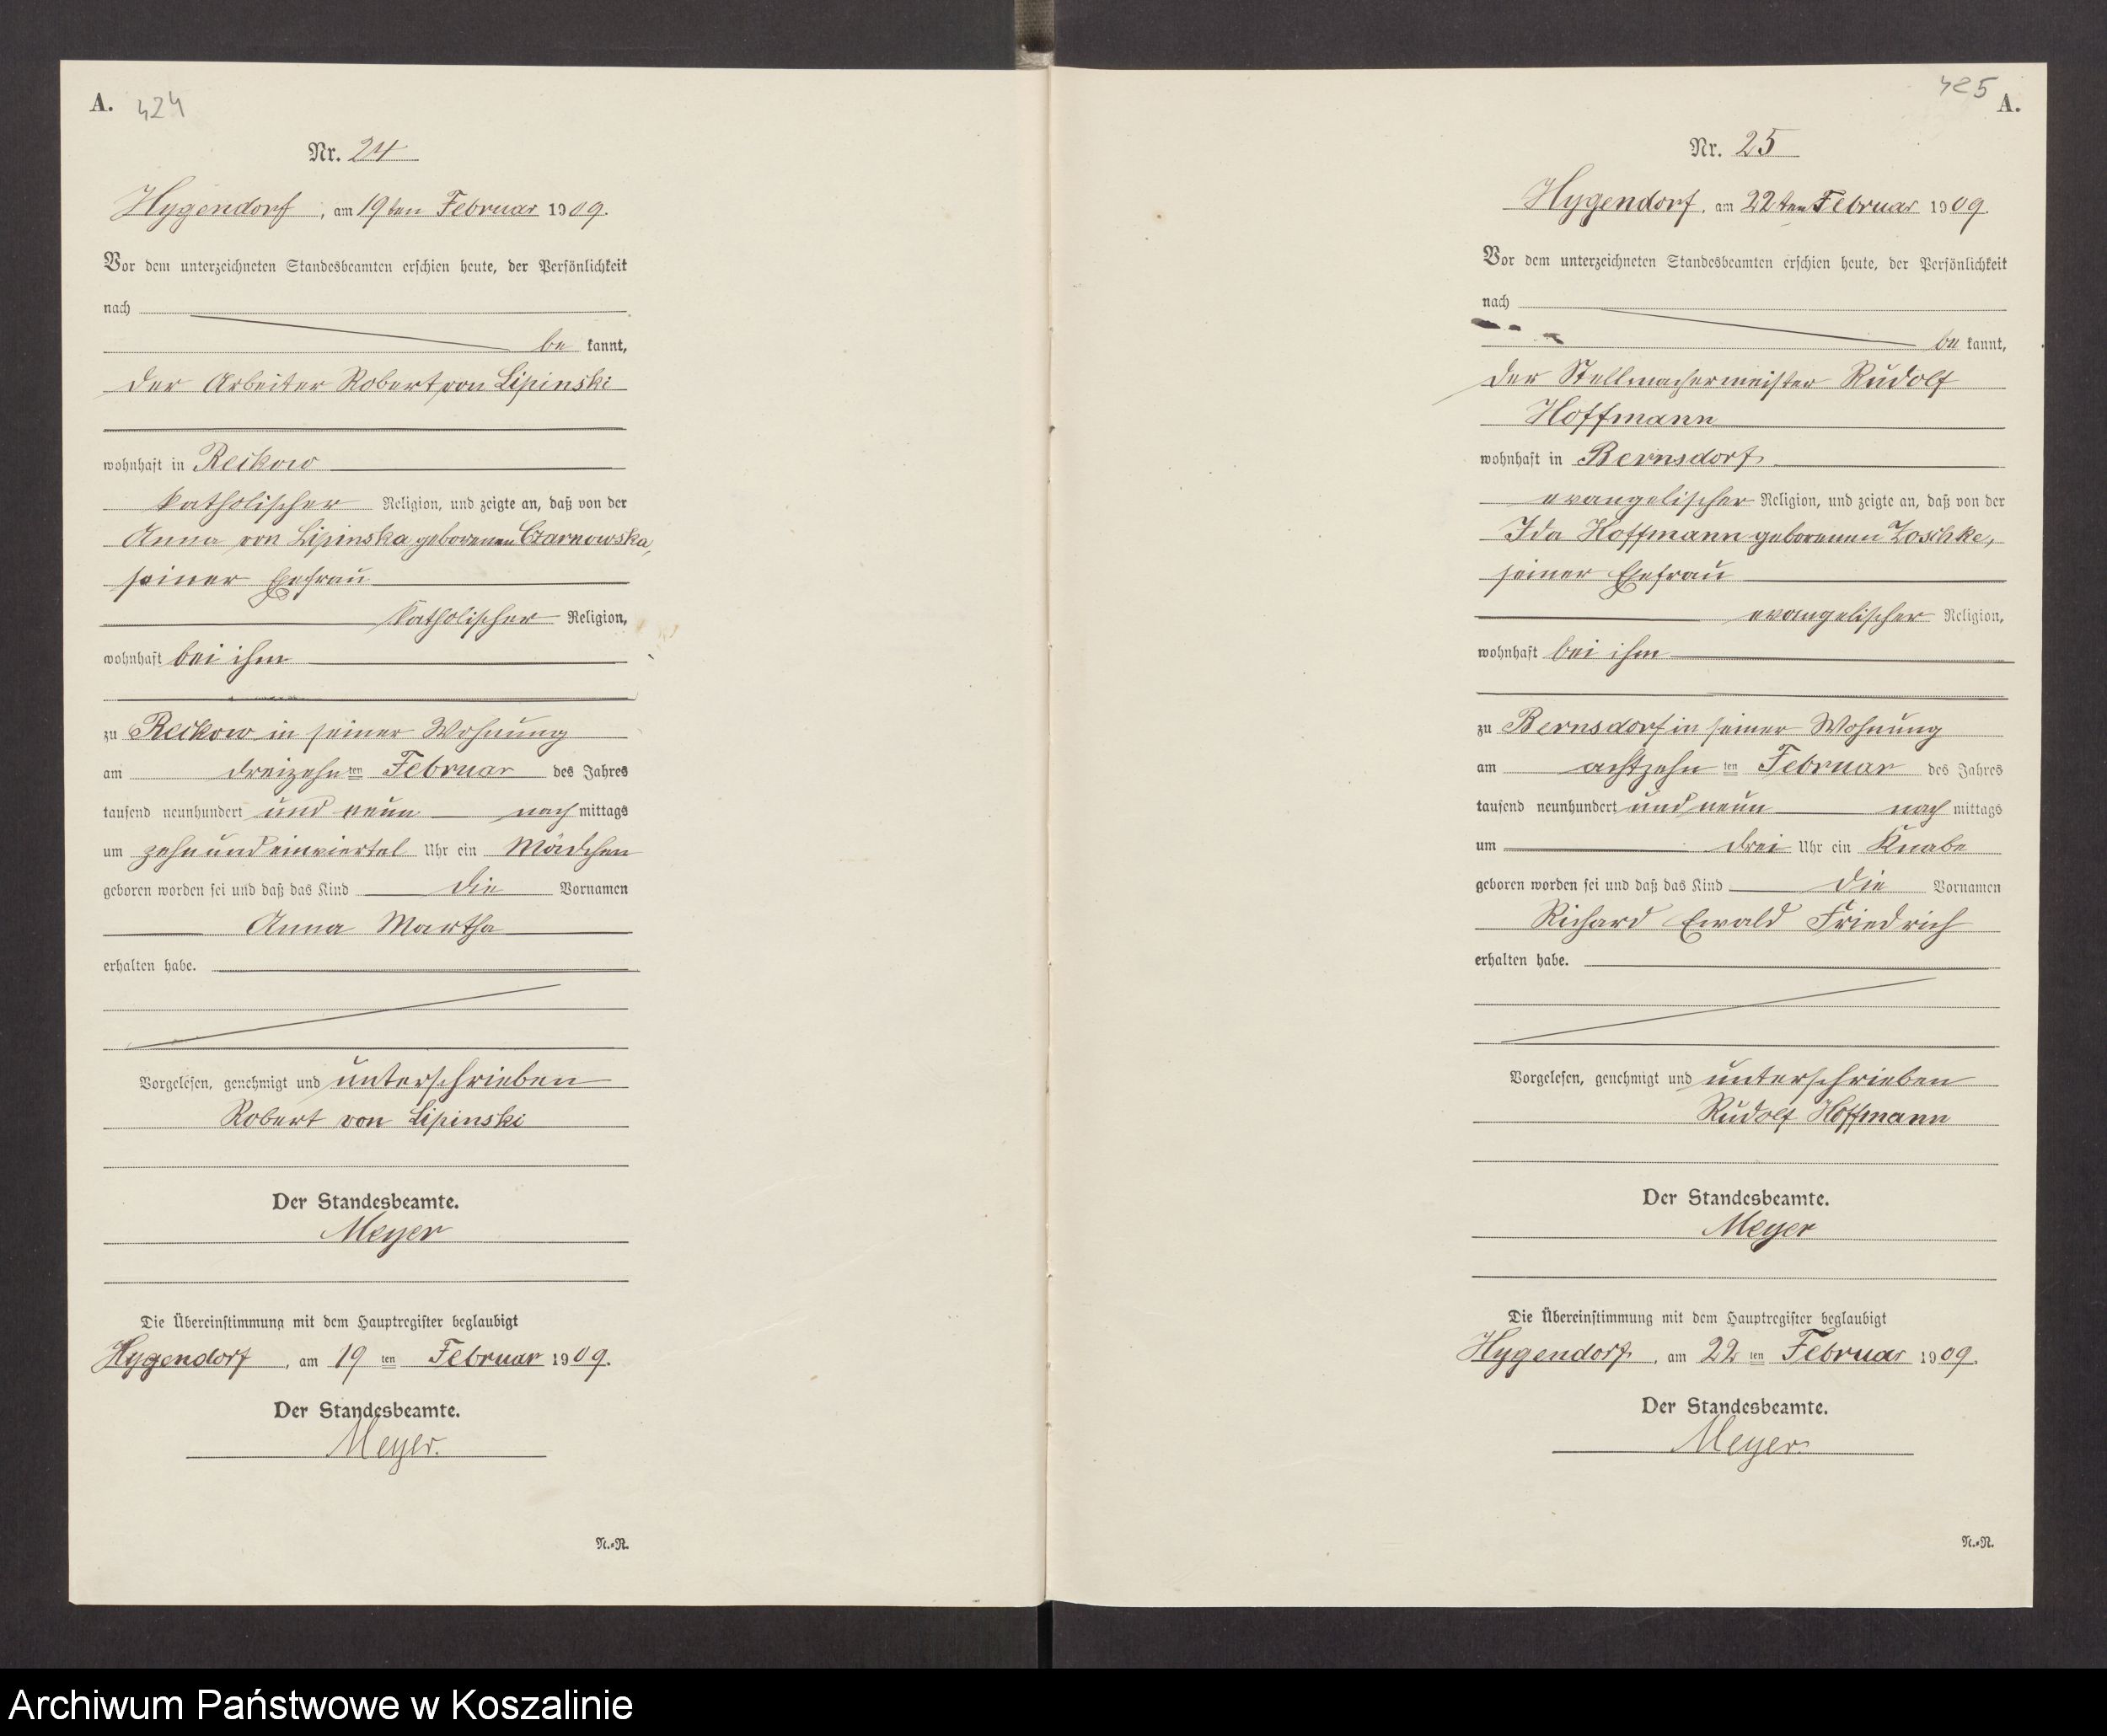 A. 424
Nr. 24
Hygendorf, am 19ten Februar 1909.
Vor dem unterzeichneten Standesbeamten erschien heute, der Persönlichkeit
nach
be kannt,
der Arbeiter Robert von Lipinski
wohnhaft in Reckow
katholischer Religion, und zeigte an, daß von der
Anna von Lipinska geborenen Czarnowska,
seiner Ehefrau
katholischer Religion,
wohnhaft bei ihm
zu Reckow in seiner Wohnung
am dreizehn ten Februar des Jahres
tausend neunhundert und neun nach mittags
um zehn und einviertel Uhr ein Mädchen
geboren worden sei und daß das Kind die Vornamen
Anna Martha
erhalten habe.
Vorgelesen, genehmigt und unterschrieben
Robert von Lipinski
Der Standesbeamte.
Meyer
Die Übereinstimmung mit dem Hauptregister beglaubigt
Hygendorf, am 19 ten Februar 1909.
Der Standesbeamte.
Meyer.
N.=R.
425 A.
Nr. 25
Hygendorf, am 22ten Februar 1909.
Vor dem unterzeichneten Standesbeamten erschien heute, der Persönlichkeit
nach
be kannt,
der Stellmachermeister Rudolf
Hoffmann
wohnhaft in Bernsdorf
evangelischer Religion, und zeigte an, daß von der
Ida Hoffmann geborenen Zoschke,
seiner Ehefrau
evangelischer Religion,
wohnhaft bei ihm
zu Bernsdorf in seiner Wohnung
am achtzehn ten Februar des Jahres
tausend neunhundert und neun nach mittags
um drei Uhr ein Knabe
geboren worden sei und daß das Kind die Vornamen
Richard Ewald Friedrich
erhalten habe.
Vorgelesen, genehmigt und unterschrieben
Rudolf Hoffmann
Der Standesbeamte.
Meyer
Die Übereinstimmung mit dem Hauptregister beglaubigt
Hygendorf, am 22 ten Februar 1909.
Der Standesbeamte.
Meyer.
N.=R.
Archiwum Państwowe w Koszalinie